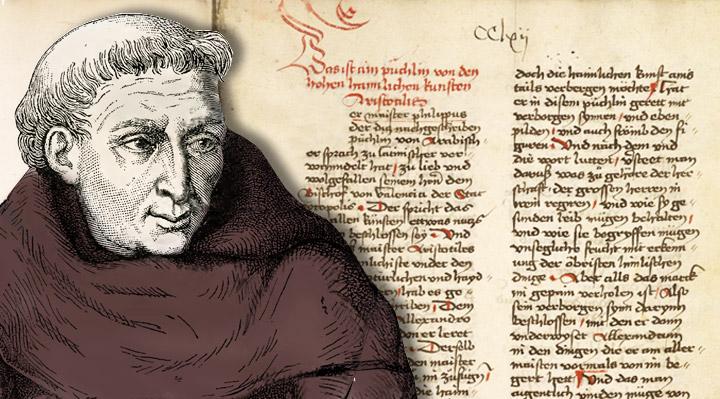 CClxij
Das ist ain püchlin von den
hohen haimlichen künsten
Aristotilis
er maister philippus
der diß nachgeschriben
püchlin von Arabisch
er sprach zu latinischer ver
wanndelt hat / zu lieb vnd
wolgefallen seinem hern dem
Bischof von Valencia der Stat
tropolis · Der spricht das
allen künsten etwas nutz
beschlossen sey · Vnd
maister Aristotiles
nlichiste vnder den
türlichen vnd hayd
hab es go
riben / Dem
Allexandro
on er leret
Derselb
den maister
im zufügn
e haim
doch die haimlichen kunst aris
tails verborgen möchte / hat
er in disem püchlin geredt mit
verborgen synnen / vnd eben
pilden / vnd auch främbd en fi
guren / Vnd nach dem vnd
die wort lutten / versteet man
darauß was zu gehöre der her
schaft / der grossen herren in
irem regirn / vnd wie sy ge
sunden leib mügen behalten /
vnd wie sie begryffen mügen
vnsegliche frücht mit erkenn
ung der obristen himlischen
dinge · Aber alls das marck
im gepain verholen ist / Also
sein verborgen synn darynn
beschlossen / mit den er dann
vnderwyset Allexandrum
in den dingen die er am aller
maisten vormals von im be
gert hett / Vnd das man
augentlich vinden müge von